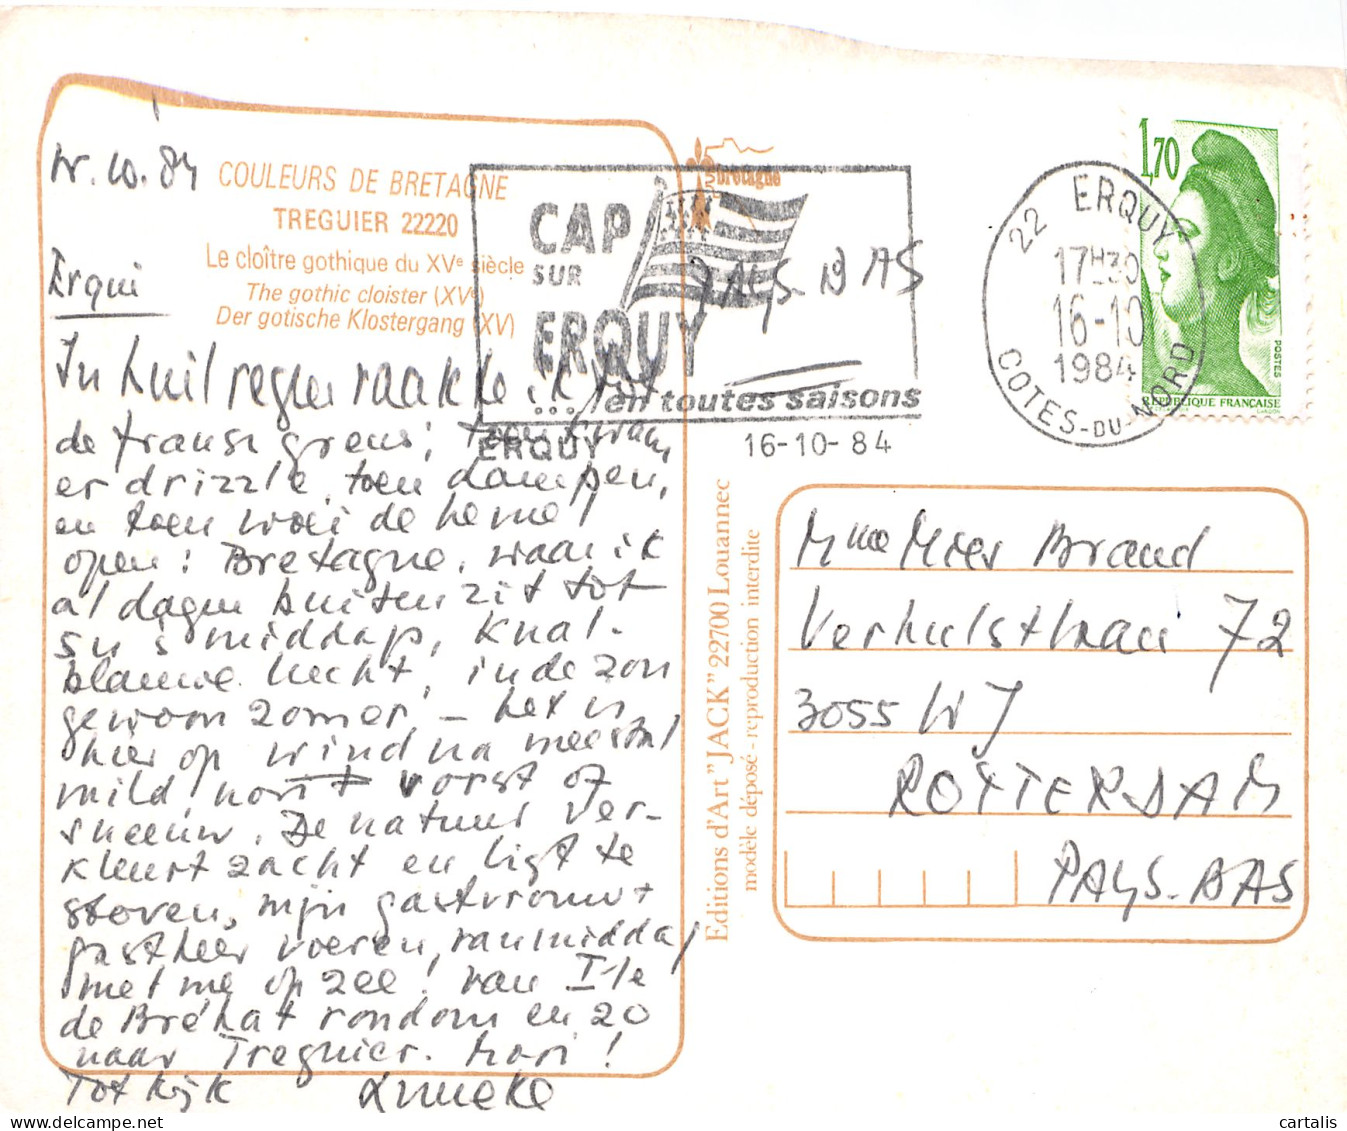 COULEURS DE BRETAGNE
TREGUIER 22220
Le cloître gothique du XVe siècle
The gothic cloister (XVe)
Der gotische Klostergang (XV)
Erqui
In huilregen raakte ik tot
de franse grens; toen kwam
er drizzle, toen dampen,
en toen woei de hemel
open: Bretagne, waar ik
al dagen buiten zit tot
's middags, knal-
blauwe lucht, in de zon
gewoon zomer - het is
hier op wind na meestal
mild, nooit vorst of
sneeuw. De natuur ver-
kleurt zacht en ligt te
stoven, mijn gastvrouw +
gastheer voeren vanmiddag
met me op zee! van Ile
de Bréhat rondom en zo
naar Treguier. Mooi!
Tot kijk Anneke
bretagne
CAP
SUR
ERQUY
... en toutes saisons
ERQUY 16-10-84
PAYS-BAS
22 ERQUY
17H30
16-10
1984
COTES-DU-NORD
1,70
POSTES
REPUBLIQUE FRANÇAISE
Editions d'Art "JACK" 22700 Louannec
modèle déposé - reproduction interdite
Mme Mies Brand
Verhulstlaan 72
3055 WJ
ROTTERDAM
PAYS-BAS
cartalis